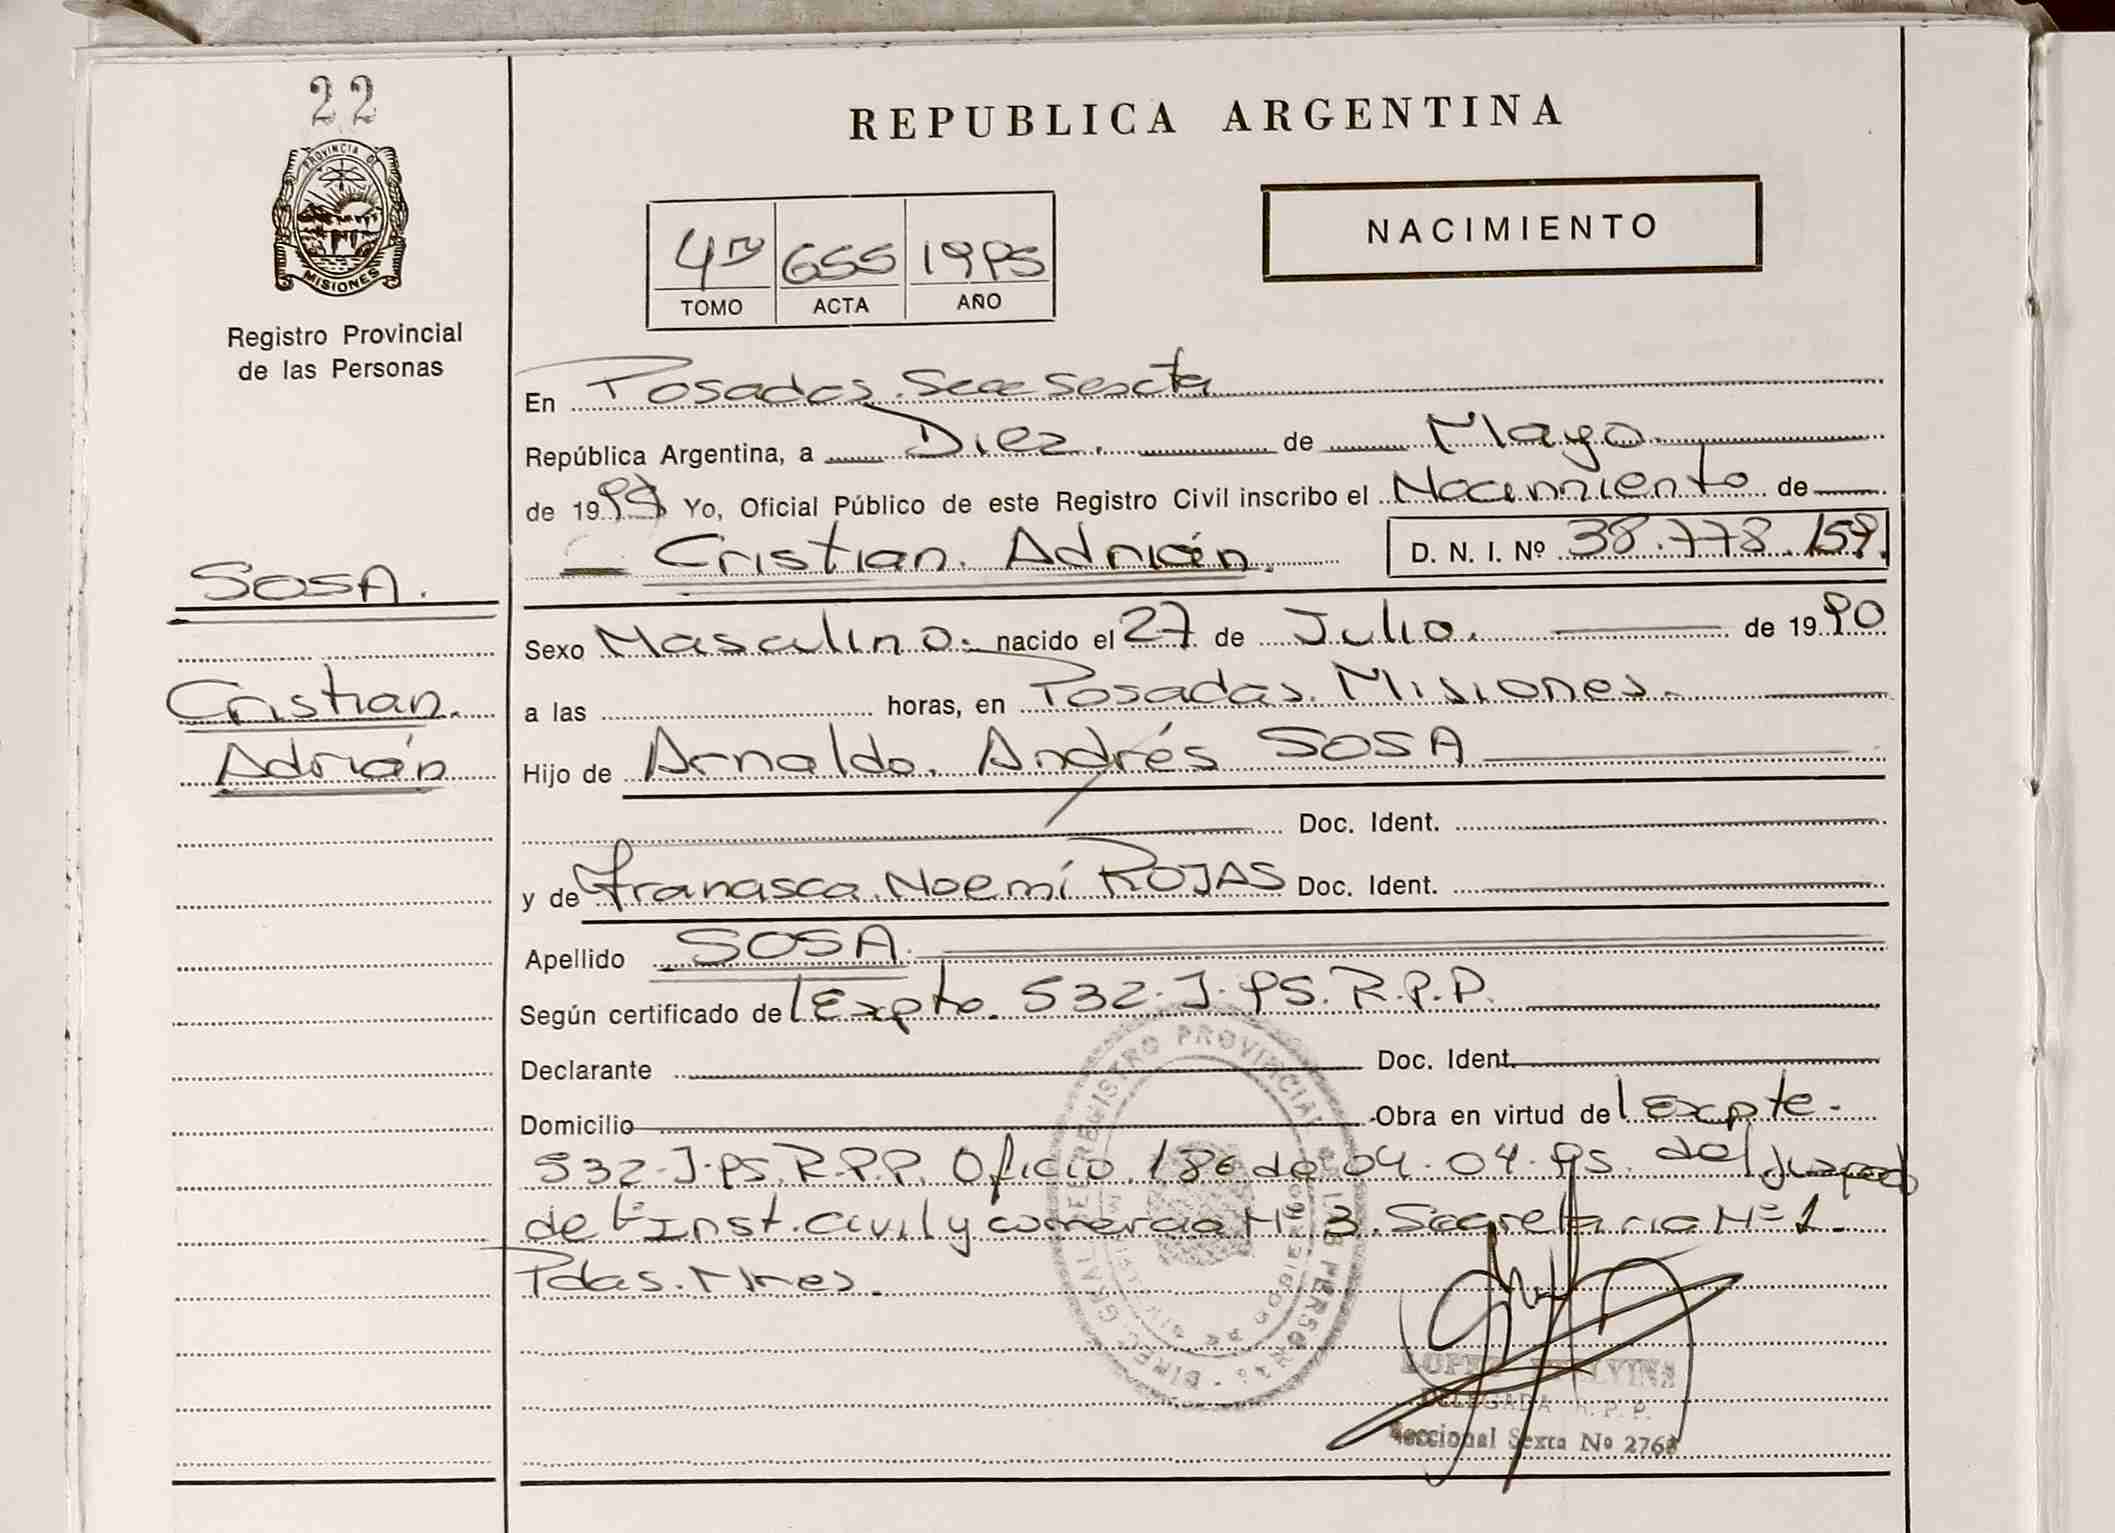 22
PROVINCIA DE
MISIONES
Registro Provincial
de las Personas
SOSA.
Cristian.
Adrián
REPUBLICA ARGENTINA
NACIMIENTO
4to 655 1995
TOMO ACTA AÑO
En Posadas. Secc Sexta
República Argentina, a Diez. de Mayo.
de 199 Yo, Oficial Público de este Registro Civil inscribo el Nacimiento de
Cristian. Adrián. D. N. I. Nº 38.778.159.
Sexo Masculino. nacido el 27 de Julio. de 1990
a las horas, en Posadas. Misiones.
Hijo de Arnaldo. Andrés SOSA
Doc. Ident.
y de Francisca. Noemí ROJAS Doc. Ident.
Apellido SOSA.
Según certificado de l Expte. 532. J. 95. R.P.P.
Declarante Doc. Ident.
Domicilio Obra en virtud de l Expte.
532. J. 95. R.P.P. Oficio 186 de 04. 04. 95. del Juzgado
de 1ª Inst. Civil y comercial Nº 3. Secretaria Nº 1.
Pdas. Mnes.
DIREC. GRAL DE REGISTRO PROVINCIAL DE LAS PERSONAS
LOPEZ
DELEGADA R. P. P.
Seccional Sexta Nº 2763